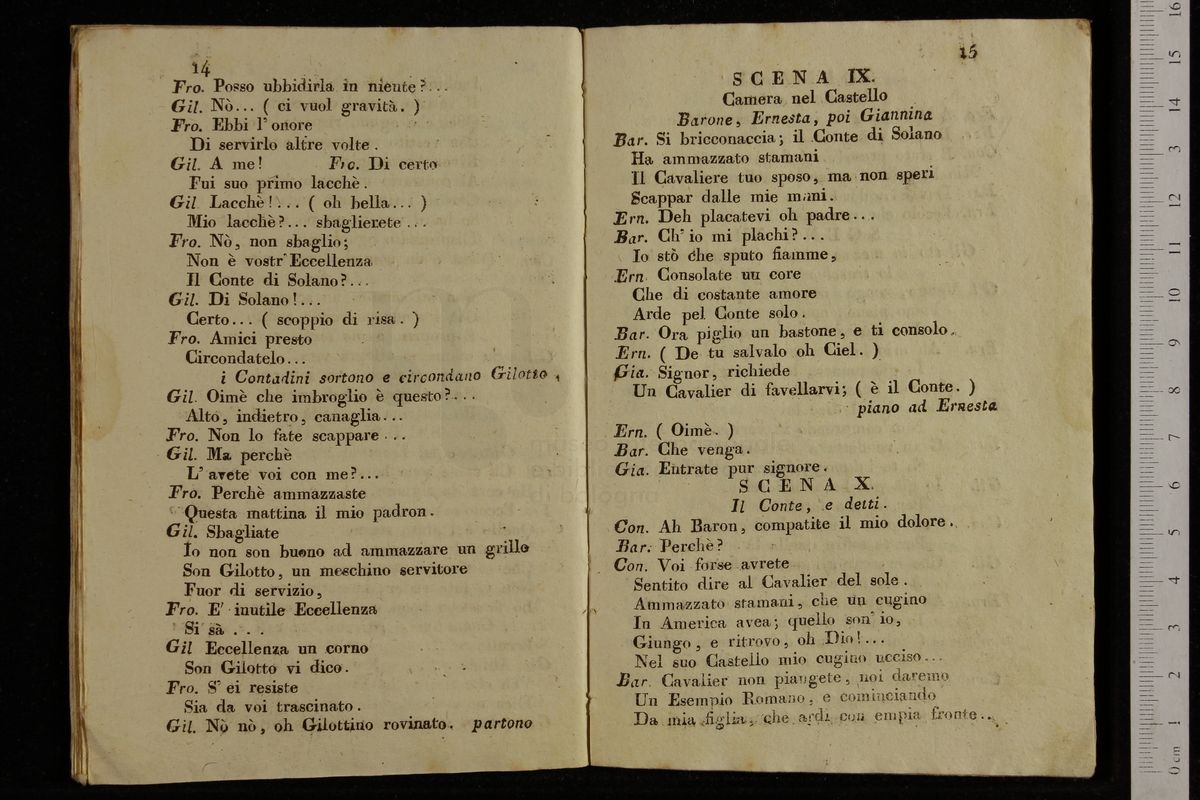 14
Fro. Posso ubbidirla in niente?...
Gil. Nò... ( ci vuol gravità. )
Fro. Ebbi l' onore
Di servirlo altre volte.
Gil. A me! Fro. Di certo
Fui suo primo lacchè.
Gil Lacchè!... ( oh bella... )
Mio lacchè?... sbaglierete...
Fro. Nò, non sbaglio;
Non è vostr' Eccellenza
Il Conte di Solano?...
Gil. Di Solano!...
Certo... ( scoppio di risa. )
Fro. Amici presto
Circondatelo...
i Contadini sortono e circondano Gilotto,
Gil. Oimè che imbroglio è questo?...
Alto, indietro, canaglia...
Fro. Non lo fate scappare...
Gil. Ma perchè
L' avete voi con me?...
Fro. Perchè ammazzaste
Questa mattina il mio padron.
Gil. Sbagliate
Io non son buono ad ammazzare un grillo
Son Gilotto, un meschino servitore
Fuor di servizio,
Fro. E' inutile Eccellenza
Si sà...
Gil Eccellenza un corno
Son Gilotto vi dico.
Fro. S' ei resiste
Sia da voi trascinato.
Gil. Nò nò, oh Gilottino rovinato. partono
15
SCENA IX.
Camera nel Castello
Barone, Ernesta, poi Giannina
Bar. Si bricconaccia; il Conte di Solano
Ha ammazzato stamani
Il Cavaliere tuo sposo, ma non speri
Scappar dalle mie mani.
Ern. Deh placatevi oh padre...
Bar. Ch' io mi plachi?...
Io stò che sputo fiamme,
Ern. Consolate uu core
Che di costante amore
Arde pel Conte solo.
Bar. Ora piglio un bastone, e ti consolo.
Ern. ( De tu salvalo oh Ciel. )
Gia. Signor, richiede
Un Cavalier di favellarvi; ( è il Conte. )
piano ad Ernesta
Ern. ( Oimè. )
Bar. Che venga.
Gia. Entrate pur signore.
SCENA X.
Il Conte, e detti.
Con. Ah Baron, compatite il mio dolore.
Bar. Perchè?
Con. Voi forse avrete
Sentito dire al Cavalier del sole.
Ammazzato stamani, che un cugino
In America avea; quello son' io,
Giungo, e ritrovo, oh Dio!...
Nel suo Castello mio cugino ucciso...
Bar. Cavalier non piangete, noi daremo
Un Esempio Romano, e cominciando
Da mia figlia, che ardì con empia fronte..